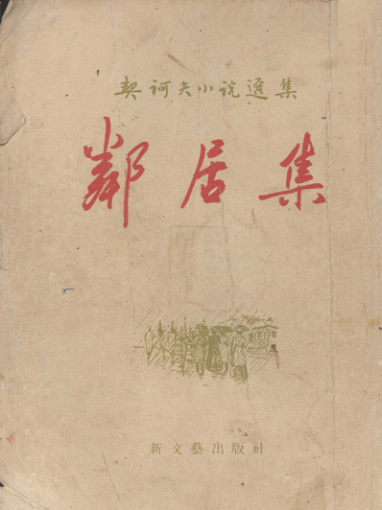 契诃夫小说選集
鄰居集
新文藝出版社